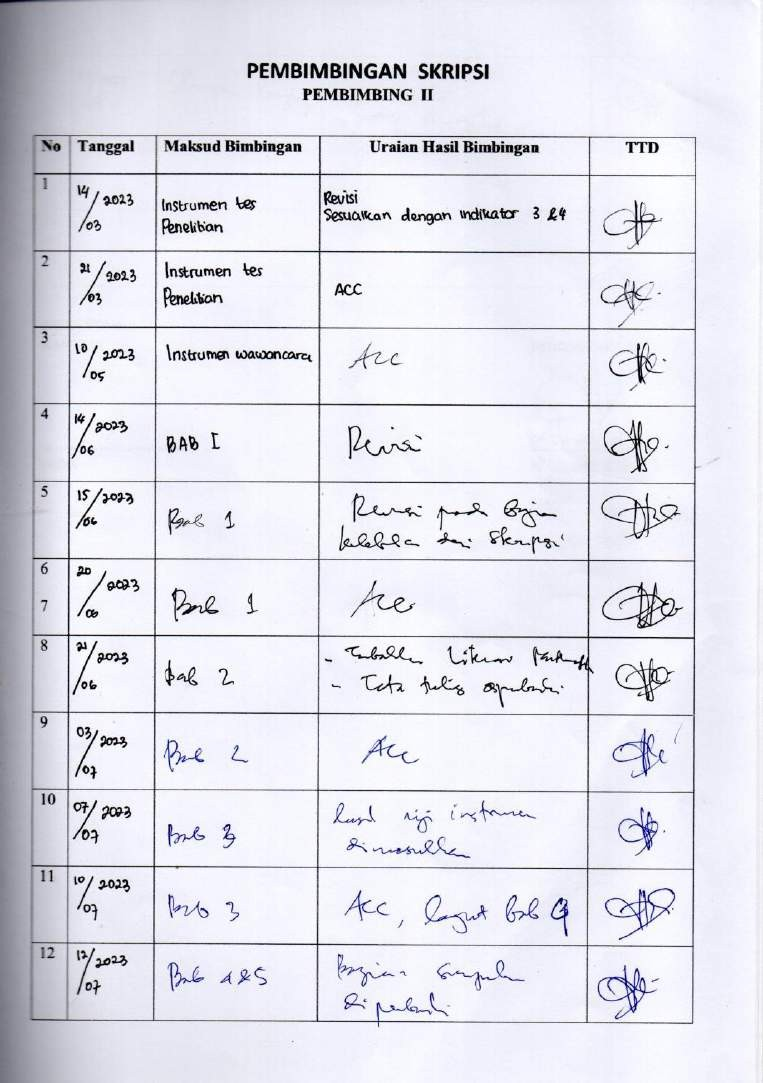 PEMBIMBINGAN SKRIPSI
PEMBIMBING II
No Tanggal Maksud Bimbingan Uraian Hasil Bimbingan TTD
1 14/03 2023 Instrumen tes Revisi
Penelitian Sesuaikan dengan indikator 3 & 4
2 21/03 2023 Instrumen tes
Penelitian ACC
3 10/05 2023 Instrumen wawancara Acc
4 14/06 2023 BAB I Revisi
5 15/06 2023 Bab 1 Revisi pada bagian
dari Skripsi
6 20/06 2023
7 Bab 1 Acc
8 21/06 2023 Bab 2 -
- Tata tulis
9 03/07 2023 Bab 2 Acc
10 07/07 2023 Bab 3 hasil uji instrumen
dimasukkan
11 10/07 2023 Bab 3 ACC, lanjut bab 4
12 12/07 2023 Bab 4 & 5 Bagian
diperbaiki